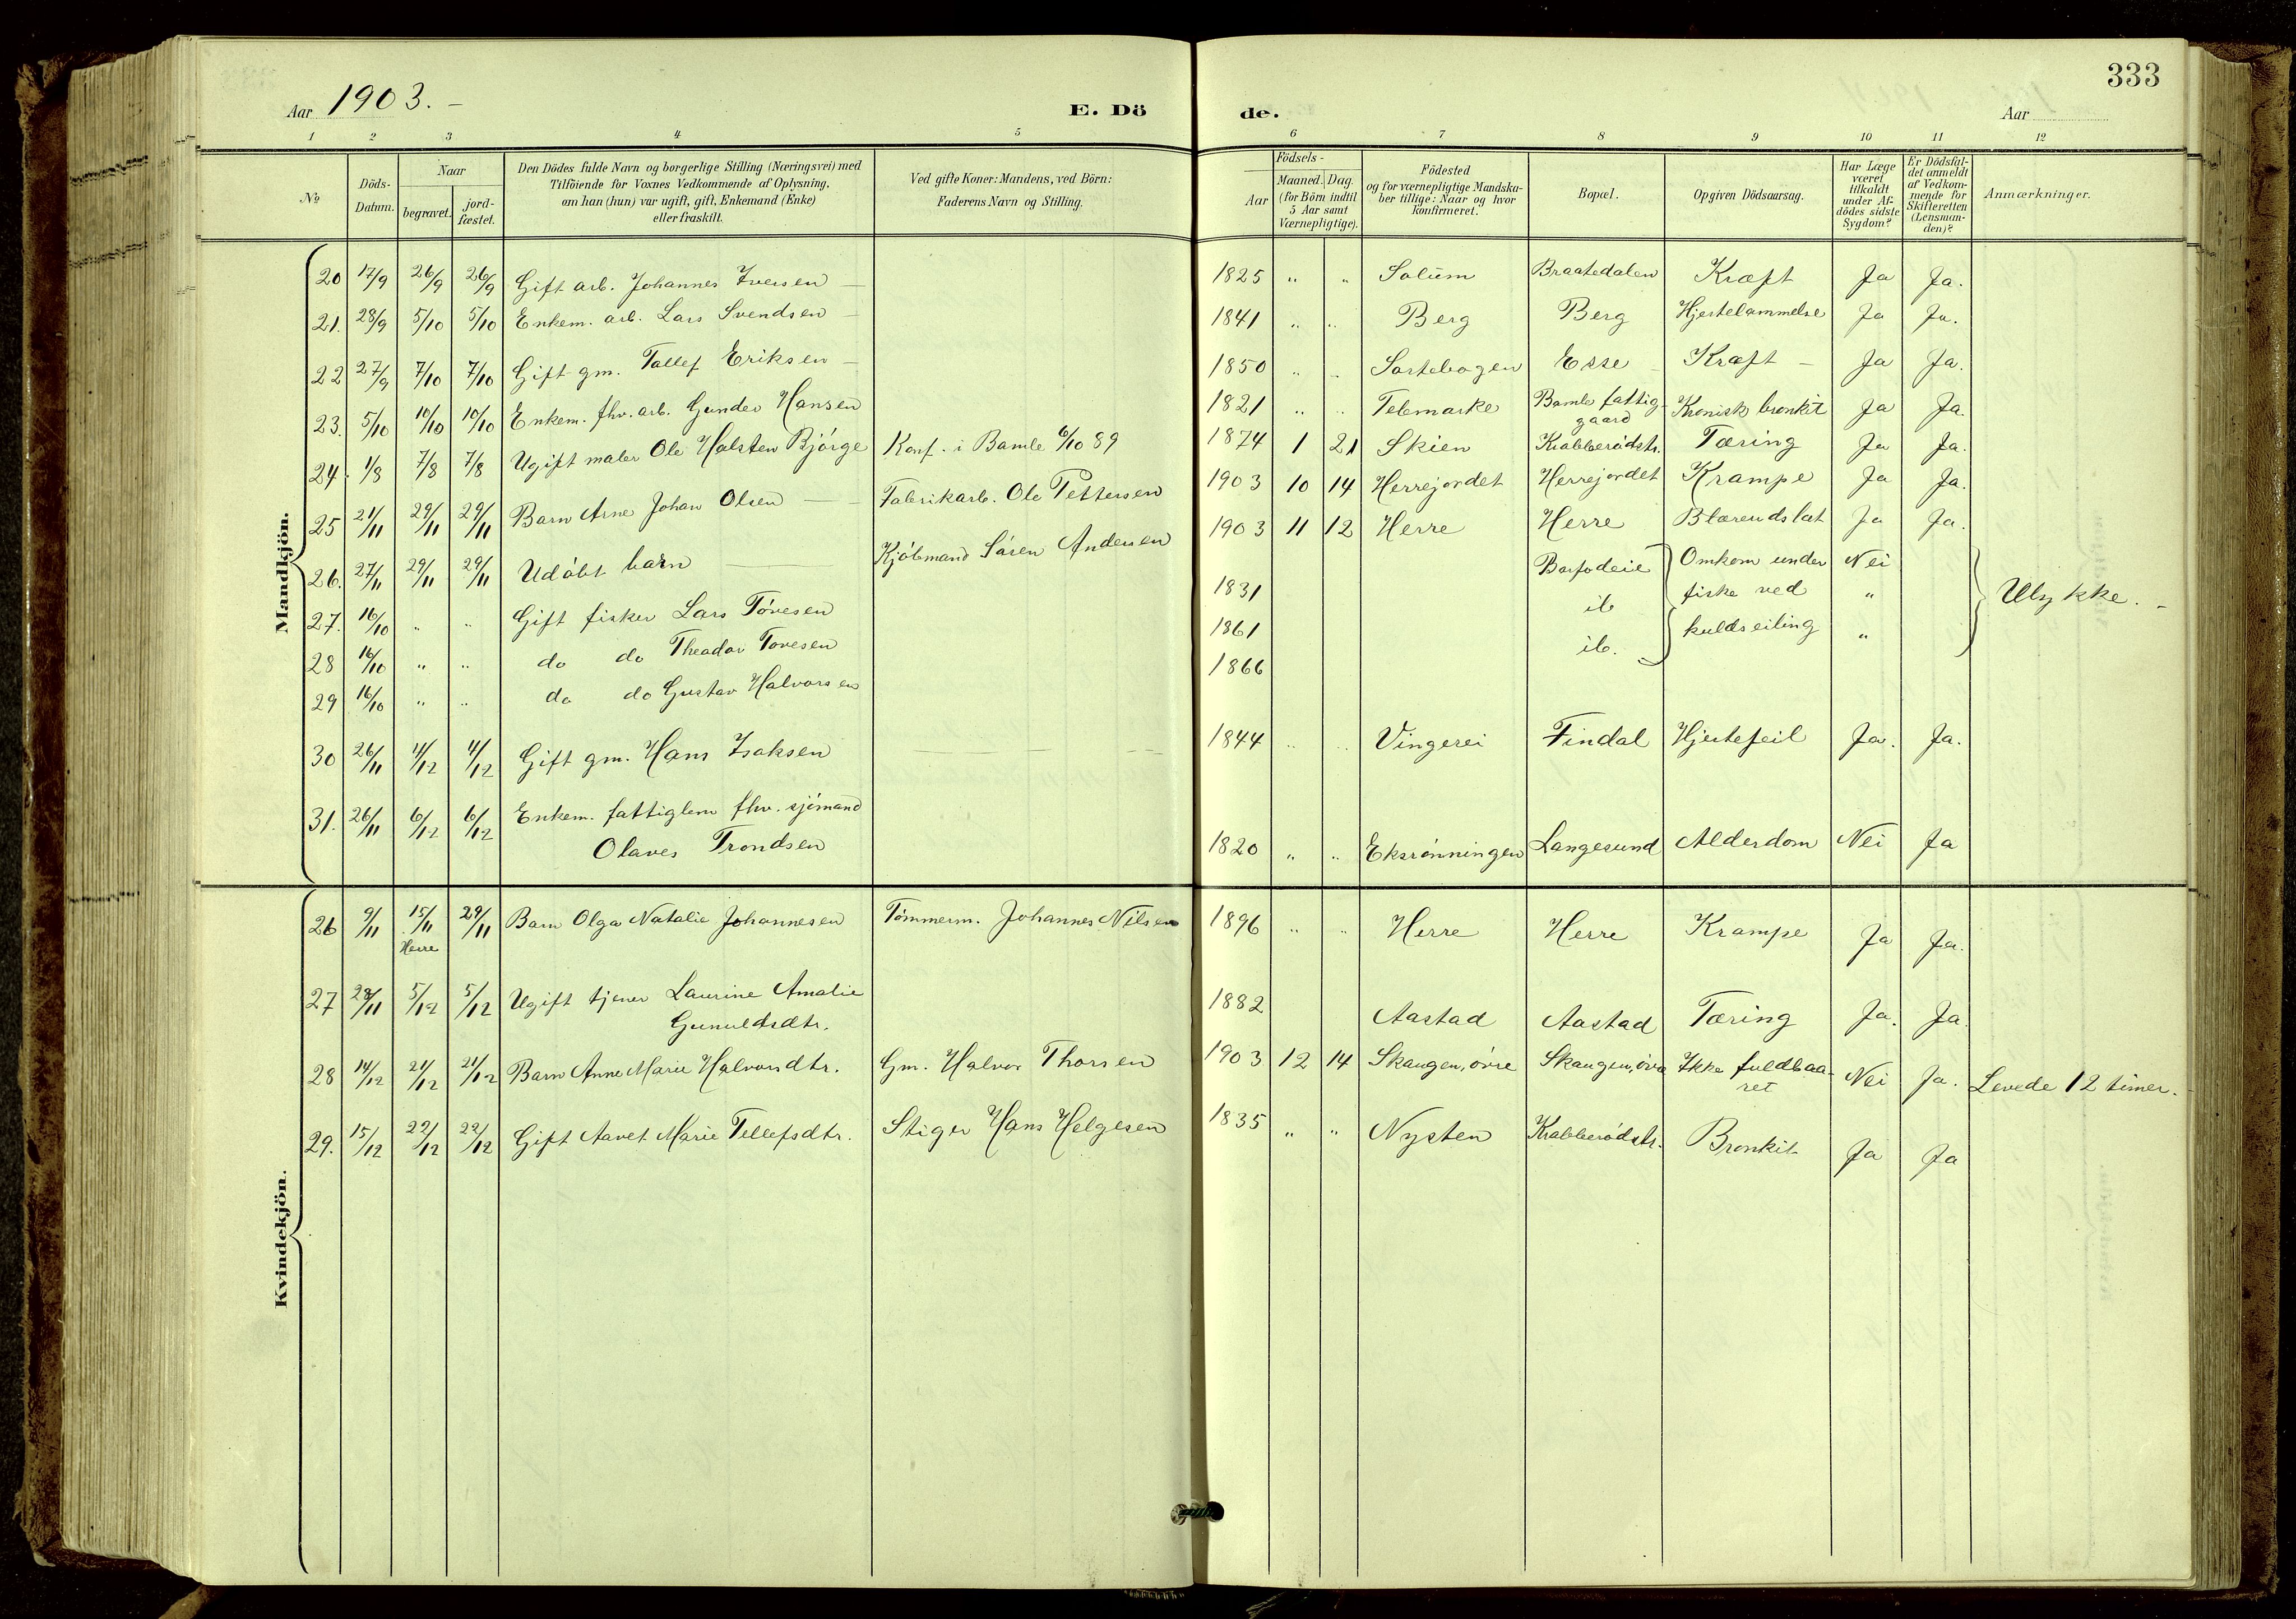 333
Aar 1903. –
E. Dö de.
Aar
1 2 3 4 5 6 7 8 9 10 11 12
No
Döds-Datum.
Naar
begravet.
jord-fæstet.
Den Dödes fulde Navn og borgerlige Stilling (Næringsvei) med
Tilföiende for Voxnes Vedkommende af Oplysning,
om han (hun) var ugift, gift, Enkemand (Enke)
eller fraskilt.
Ved gifte Koner: Mandens, ved Börn:
Faderens Navn og Stilling.
Födsels-
Aar
Maaned. Dag.
(for Börn indtil
5 Aar samt
Værnepligtige).
Födested
og for værnepligtige Mandska-
ber tillige: Naar og hvor
konfirmeret.
Bopæl.
Opgiven Dödsaarsag.
Har Læge
været
tilkaldt
under Af-
dödes sidste
Sygdom?
Er Dödsfal-
det anmeldt
af Vedkom-
mende for
Skifteretten
(Lensman-
den)?
Anmærkninger.
Mandkjön.
20 17/9 26/9 26/9 Gift arb. Johannes Iversen – 1825 " " Solum Braatedalen Kræft Ja Ja.
21. 28/9 5/10 5/10 Enkem. arb. Lars Svendsen – 1841 " " Berg Berg Hjertelammelse Ja Ja.
22 27/9 7/10 7/10 Gift gm. Tallef Eriksen – 1850 " " Sortebogen Esse Kræft – Ja Ja.
23. 5/10 10/10 10/10 Enkem. fhv. arb. Gunder Hansen 1821 " " Telemarke Bamle fattig-
gaard Kronisk bronkit Ja Ja.
24. 1/8 7/8 7/8 Ugift maler Ole Halsten Bjørge Konf. i Bamle 6/10 89 1874 1 21 Skien Krabberødstr. Tæring Ja Ja.
25 21/11 29/11 29/11 Barn Arne Johan Olsen – Fabrikarb. Ole Pettersen 1903 10 14 Herrejordet Herrejordet Krampe Ja Ja.
26. 27/11 29/11 29/11 Udøbt barn – Kjøbmand Søren Andersen 1903 11 12 Herre Herre Blærendslæt Ja Ja.
27. 16/10 " " Gift fisker Lars Tøvesen 1831 Barfodeie Omkom under Nei
28 16/10 " " do do Theador Tovesen 1861 ib fiske ved " Ulykke. –
29 16/10 " " do do Gustav Halvorsen 1866 ib. kuldseiling "
30 26/11 4/12 4/12 Gift gm. Hans Isaksen – 1844 " " Vingerei Findal Hjertefeil Ja. Ja.
31. 26/11 6/12 6/12 Enkem. fattiglem fhv. sjømand
Olaves Trondsen 1820 " " Eksrønningen Langesund Alderdom Nei Ja
Kvindekjön.
26 9/11 15/11 29/11 Barn Olga Natalie Johannesen Tømmerm. Johannes Nilsen 1896 " " Herre Herre Krampe Ja Ja.
Herre
27 28/11 5/12 5/12 Ugift tjener Laurine Amalie
Gunuldsdtr. 1882 Aastad Aastad Tæring Ja. Ja.
28 14/12 21/12 21/12 Barn Anne Marie Halvorsdtr. Gm. Halvor Thorsen 1903 12 14 Skaugen, øvre Skaugen, øvre Ikke fuldbaa-
ret Nei Ja. Levede 12 timer.
29. 15/12 22/12 22/12 Gift Aavet Marie Tellefsdtr. Stiger Hans Helgesen 1835 " " Nysten Krabberødstr. Bronkit Ja Ja